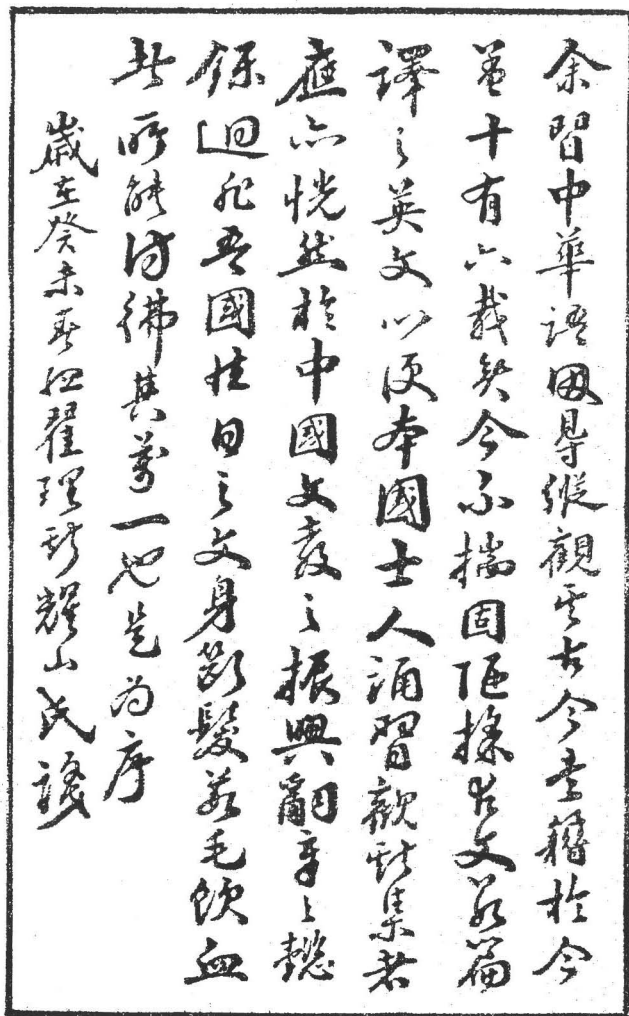 余習中華語因得縱觀其古今書籍於今
蓋十有六載矣今不揣固陋採古文數篇
譯之英文以便本國士人誦習觀斯集者
應亦恍然於中國文教之振興辭章之懿
鑠迥非吾國往日之文身斷髮茹毛飲血
者所能仿彿其萬一也是為序
歲在癸未春翟理斯耀山氏識